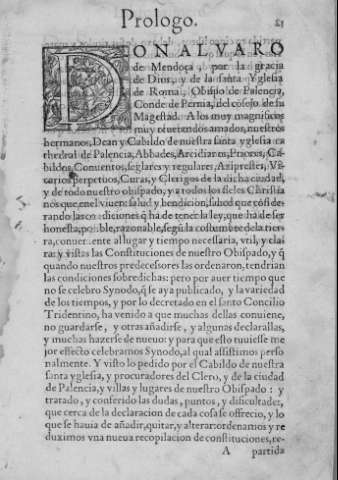 Prologo.
DON ALVARO
de Mendoça, por la gracia
de Dios, y de la santa Yglesia
de Roma, Obispo de Palencia,
Conde de Pernia, del cõsejo de su
Magestad. A los muy magnificos
muy reuerendos amados, nuestros
hermanos, Dean y Cabildo de nuestra santa yglesia ca
thedral de Palencia, Abbades, Arcidianos, Priores, Ca-
bildos, Conuentos, seglares y regulares, Aziprestes, Vi-
carios perpetuos, Curas, y Clerigos de la dicha ciudad,
y de todo nuestro obispado, y a todos los fieles Christia
nos que en el viuen: salud y bendicion, salud que cõsi de-
rando las cõdiciones q̃ ha de tener la ley, que ha de ser
honesta, posible, razonable, segũ la costumbre de la tier-
ra, conueniente al lugar y tiempo necessaria, vtil, y cla-
ra: y vistas las Constituciones de nuestro Obispado, y q̃
quando nuestros predecesores las ordenaron, tendrian
las condiciones sobredichas: pero por auer tiempo que
no se celebro Synodo, q̃ se aya publicado, y la variedad
de los tiempos, y por lo decretado en el santo Concilio
Tridentino, ha venido a que muchas dellas conuiene,
no guardarse, y otras añadirse, y algunas declarallas,
y muchas hazerse de nueuo: y para que esto tuuiesse me
jor effecto celebramos Synodo, al qual assistimos perso
nalmente. Y visto lo pedido por el Cabildo de nuestra
santa yglesia, y procuradores del Clero, y de la ciudad
de Palencia, y villas y lugares de nuestro Obispado: y
tratado, y conferido las dudas, puntos, y dificultades,
que cerca de la declaracion de cada cosa se offrecio, y lo
que se hauia de añadir, quitar, y alterar: ordenamos y re
duximos vna nueua recopilacion de constituciones, re-
A partida